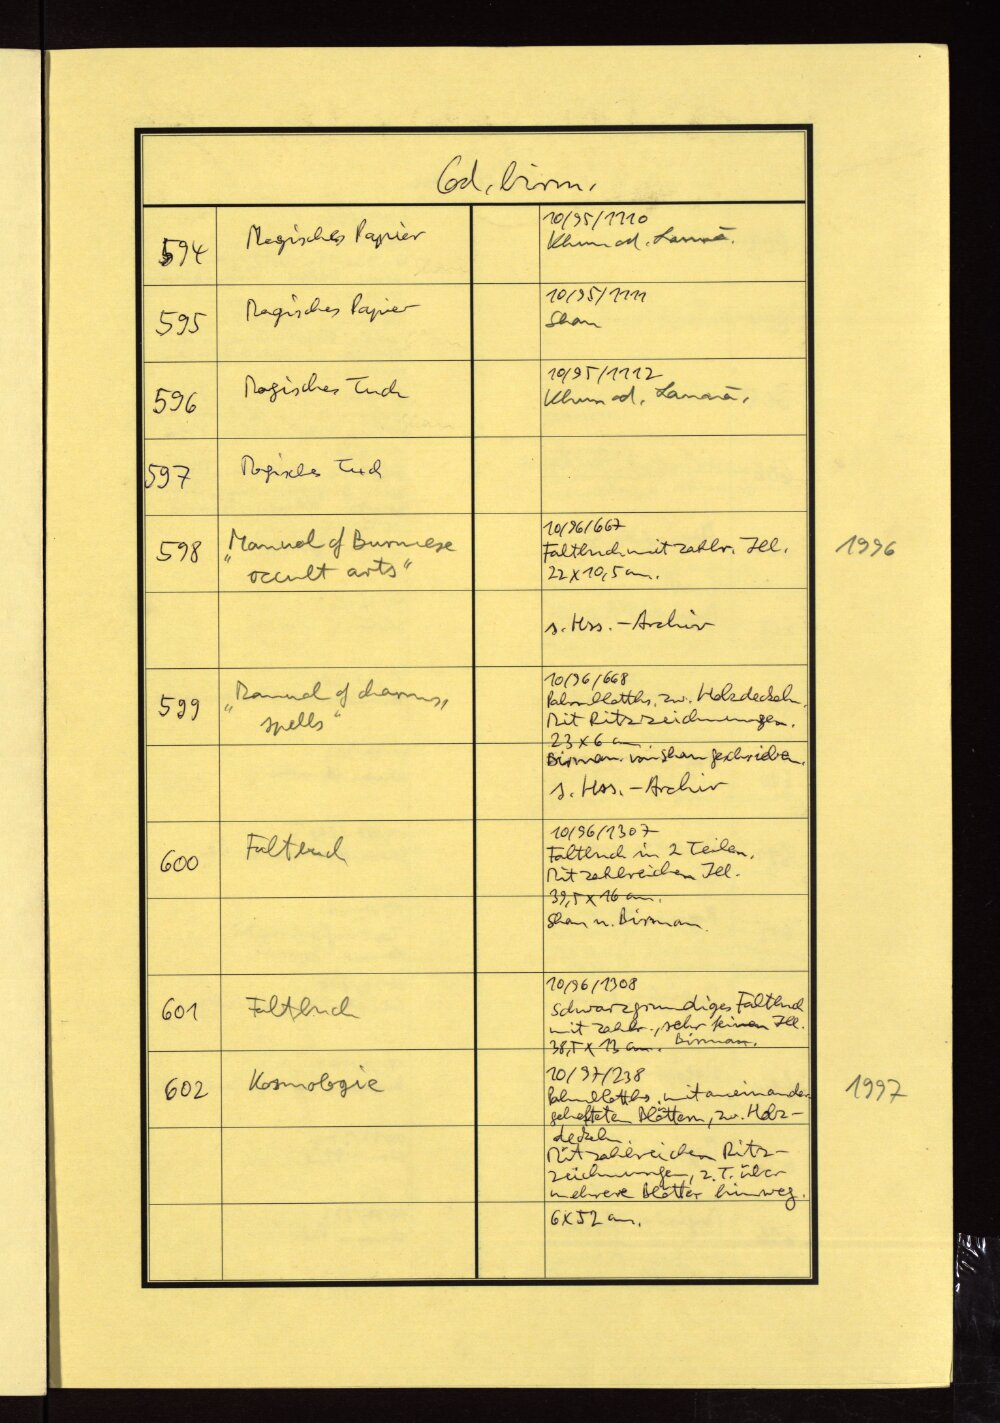 Cod. birm.
594
Magisches Papier
10/95/1110
Khün od. Lanna.
595
Magisches Papier
10/95/1111
Shan
596
Magisches Tuch
10/95/1112
Khün od. Lanna.
597
Magisches Tuch
598
"Manual of Burmese
occult arts"
10/96/667
Faltbuch mit zahlr. Ill.
22 x 10,5 cm.
1996
s. Hss.-Archiv
599
"Manual of charms,
spells"
10/96/668
Palmblatths. zw. Holzdeckeln.
Mit Ritzzeichnungen.
23 x 6 cm.
Birman. von Shan geschrieben.
s. Hss.-Archiv
600
Faltbuch
10/96/1307
Faltbuch in 2 Teilen.
Mit zahlreichen Ill.
39,5 x 16 cm.
Shan u. Birman.
601
Faltbuch
10/96/1308
Schwarzgrundiges Faltbuch
mit zahlr., sehr feinen Ill.
38,5 x 13 cm. Birman.
602
Kosmologie
10/97/238
Palmblatths. mit aneinander
gehefteten Blättern, zw. Holz-
deckeln
Mit zahlreichen Ritz-
zeichnungen, z.T. über
mehrere Blätter hinweg.
6 x 52 cm.
1997